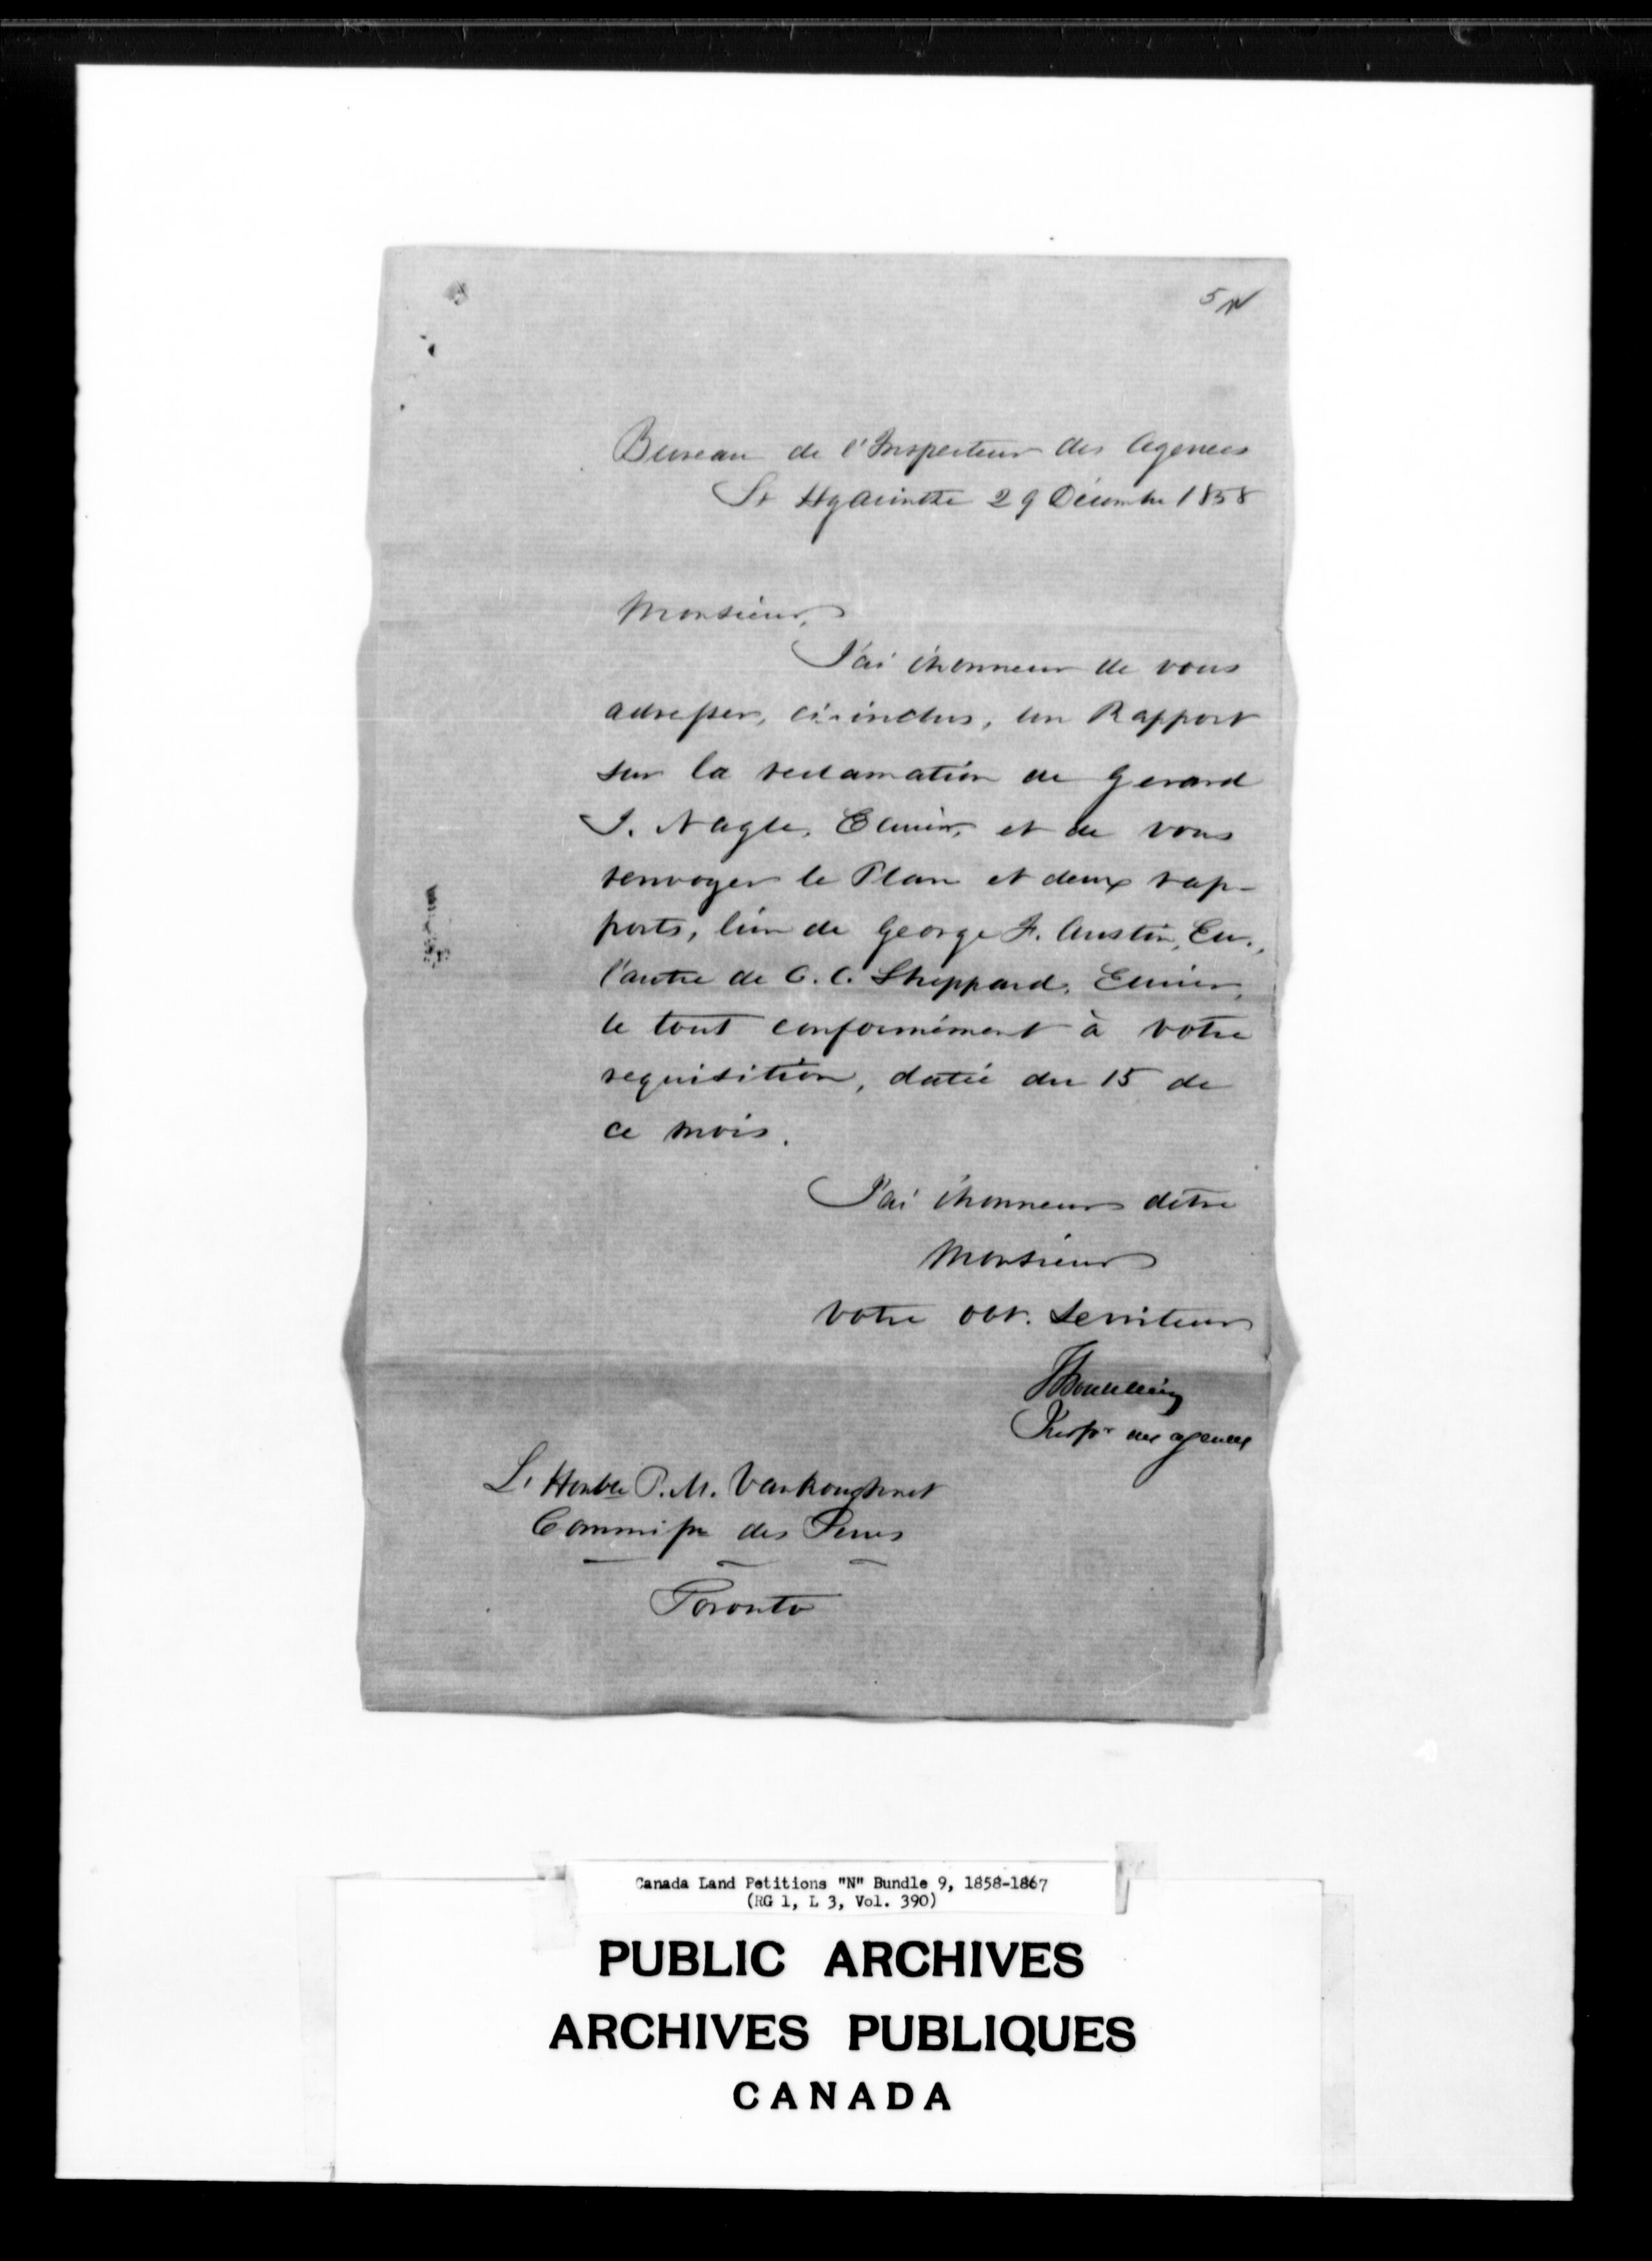 5 N
Bureau de l'Inspecteur des Agences
St Hyacinthe 29 Décembre 1858
Monsieur,
J'ai l'honneur de vous
adresser, ci-inclus, un Rapport
sur la reclamation de Gerard
J. Nagle, Ecuier, et de vous
renvoyer le Plan et deux rap-
ports, l'un de George F. Austin, Ecr.,
l'autre de C. C. Sheppard, Ecuier,
le tout conformément à votre
requisition, datée du 15 de
ce mois.
J'ai l'honneur d'être
Monsieur
votre obt. Serviteur
Inspr des agences
L'Honble P. M. Vankoughnet
Commissre des Terres
Toronto
Canada Land Petitions "N" Bundle 9, 1858-1867
(RG 1, L 3, Vol. 390)
PUBLIC ARCHIVES
ARCHIVES PUBLIQUES
CANADA